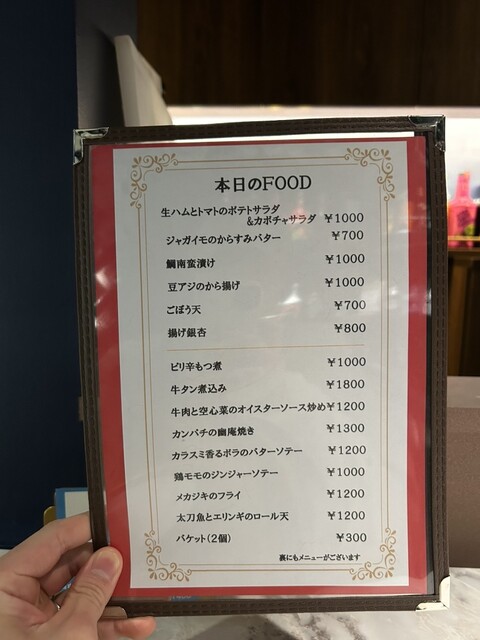 本日のFOOD
生ハムとトマトのポテトサラダ
&カボチャサラダ ¥1000
ジャガイモのからすみバター ¥700
鯛南蛮漬け ¥1000
豆アジのから揚げ ¥1000
ごぼう天 ¥700
揚げ銀杏 ¥800
ピリ辛もつ煮 ¥1000
牛タン煮込み ¥1800
牛肉と空心菜のオイスターソース炒め ¥1200
カンパチの幽庵焼き ¥1300
カラスミ香るボラのバターソテー ¥1200
鶏モモのジンジャーソテー ¥1000
メカジキのフライ ¥1200
太刀魚とエリンギのロール天 ¥1200
バケット(2個) ¥300
裏にもメニューがございます